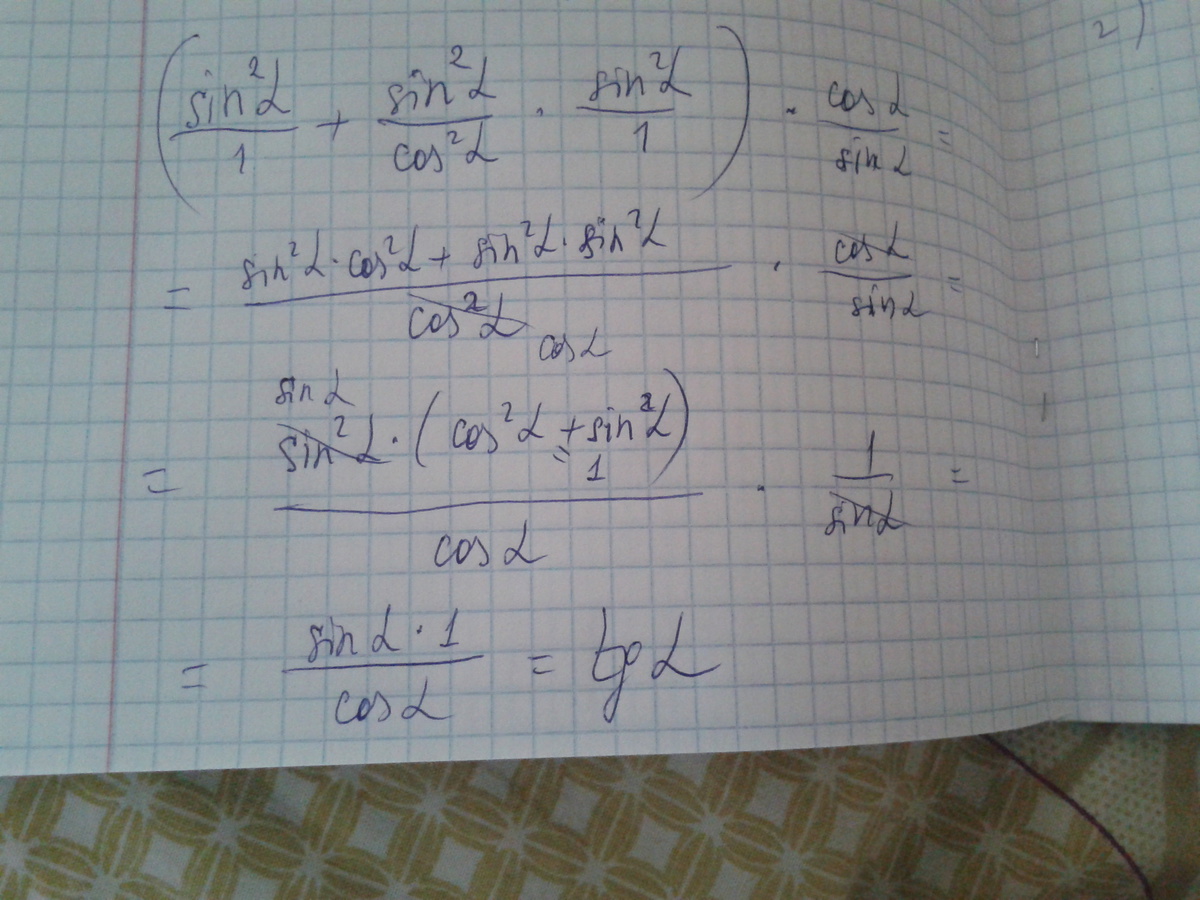 2)
(sin²α/1 + sin²α/cos²α · sin²α/1) · cosα/sinα =
= (sin²α · cos²α + sin²α · sin²α)/cos²α · cosα/sinα =
cosα
sinα
= sin²α · (cos²α + sin²α)/cosα · 1/sinα =
= 1
= sinα · 1/cosα = tgα